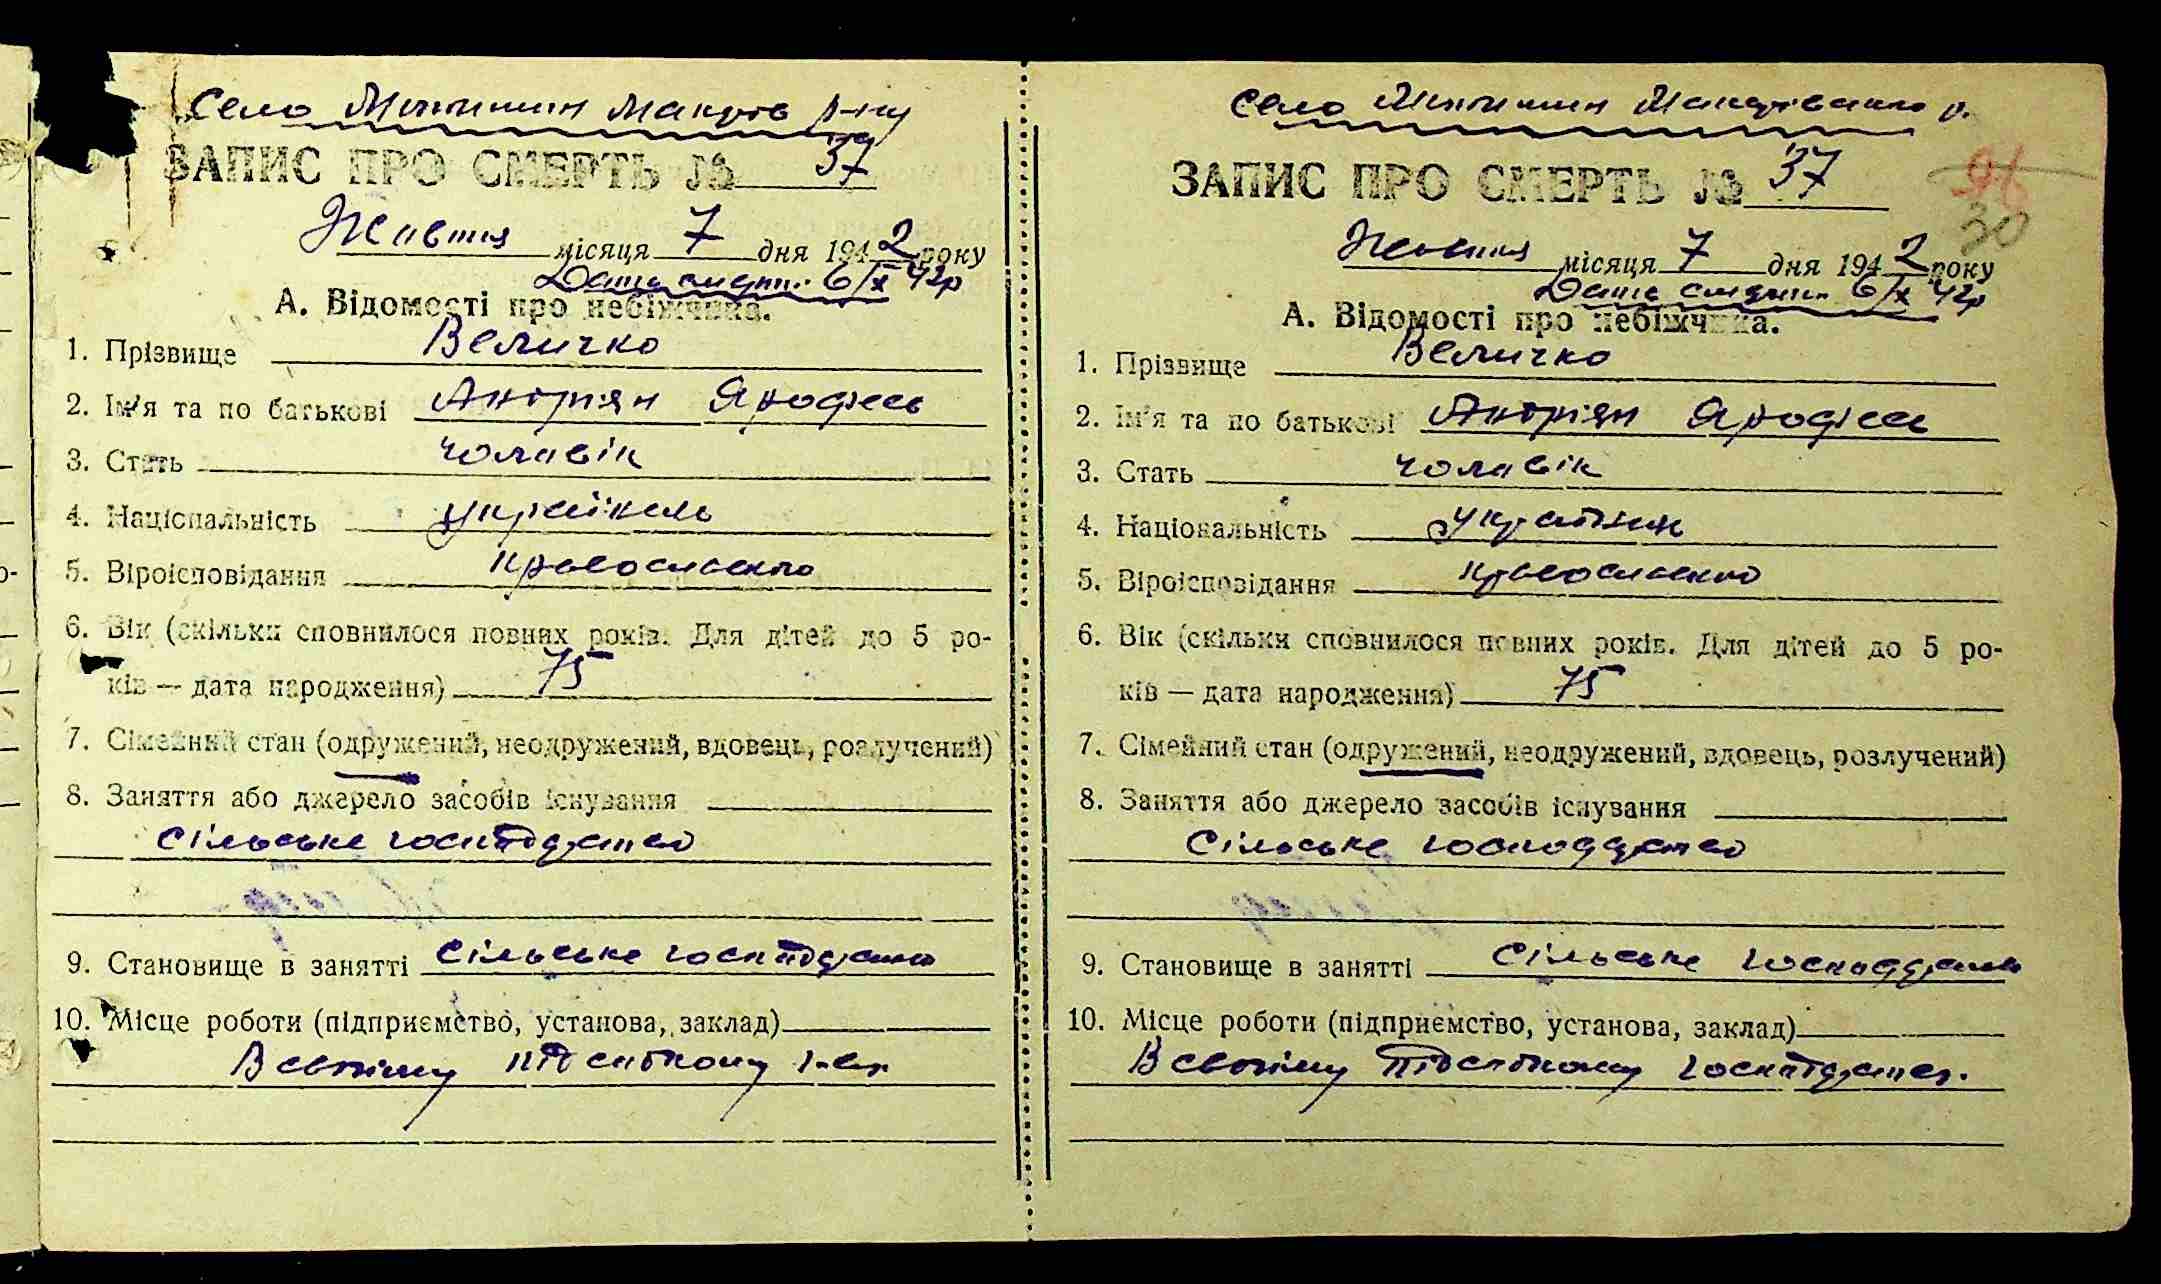 Село Мотижин Макарів р-ну
ЗАПИС ПРО СМЕРТЬ № 37
Жовтня місяця 7 дня 1942 року
Дата смерти 6/X 42р
А. Відомості про небіжчика.
1. Прізвище Величко
2. Ім'я та по батькові Андріян
3. Стать чоловік
4. Національність українець
5. Віроісповідання православно
6. Вік (скільки сповнилося повних років. Для дітей до 5 ро-
ків — дата народження) 75
7. Сімейний стан (одружений, неодружений, вдовець, розлучений)
8. Заняття або джерело засобів існування
сільське господарство
9. Становище в занятті сільське господарство
10. Місце роботи (підприємство, установа, заклад)
В своїму підсобному
Село Мотижин Макарівського р.
ЗАПИС ПРО СМЕРТЬ № 37
96
30
Жовтня місяця 7 дня 1942 року
Дата смерти 6/X 42р
А. Відомості про небіжчика.
1. Прізвище Величко
2. Ім'я та по батькові Андріян
3. Стать чоловік
4. Національність
5. Віроісповідання православно
6. Вік (скільки сповнилося повних років. Для дітей до 5 ро-
ків — дата народження) 75
7. Сімейний стан (одружений, неодружений, вдовець, розлучений)
8. Заняття або джерело засобів існування
Сільське господарство
9. Становище в занятті Сільське господарство
10. Місце роботи (підприємство, установа, заклад)
В своїму підсобному господарств.